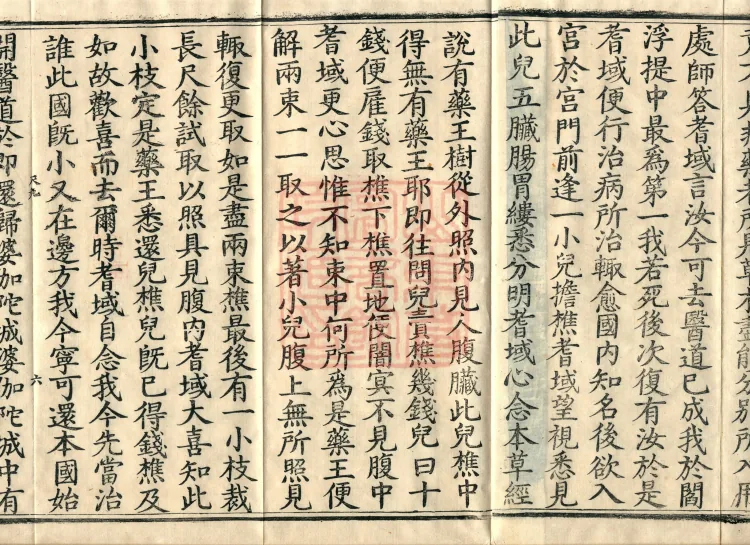 處師答耆域言汝今可去醫道已成我於閻
浮提中最爲第一我若死後次復有汝於是
耆域便行治病所治輒愈國內知名後欲入
宮於宮門前逢一小兒擔樵耆域望視悉見
此兒五臟腸胃縷悉分明耆域心念本草經
說有藥王樹從外照內見人腹臟此兒樵中
得無有藥王耶即往問兒賣樵幾錢兒曰十
錢便雇錢取樵下樵置地便闇冥不見腹中
耆域更心思惟不知束中何所為是藥王便
解兩束一一取之以著小兒腹上無所照見
輒復更取如是盡兩束樵最後有一小枝裁
長尺餘試取以照具見腹內耆域大喜知此
小枝定是藥王悉還兒樵兒旣已得錢樵及
如故歡喜而去爾時耆域自念我今先當治
誰此國旣小又在邊方我今寧可還本國始
六
開醫道於即還歸婆伽陀城婆伽陀城中有